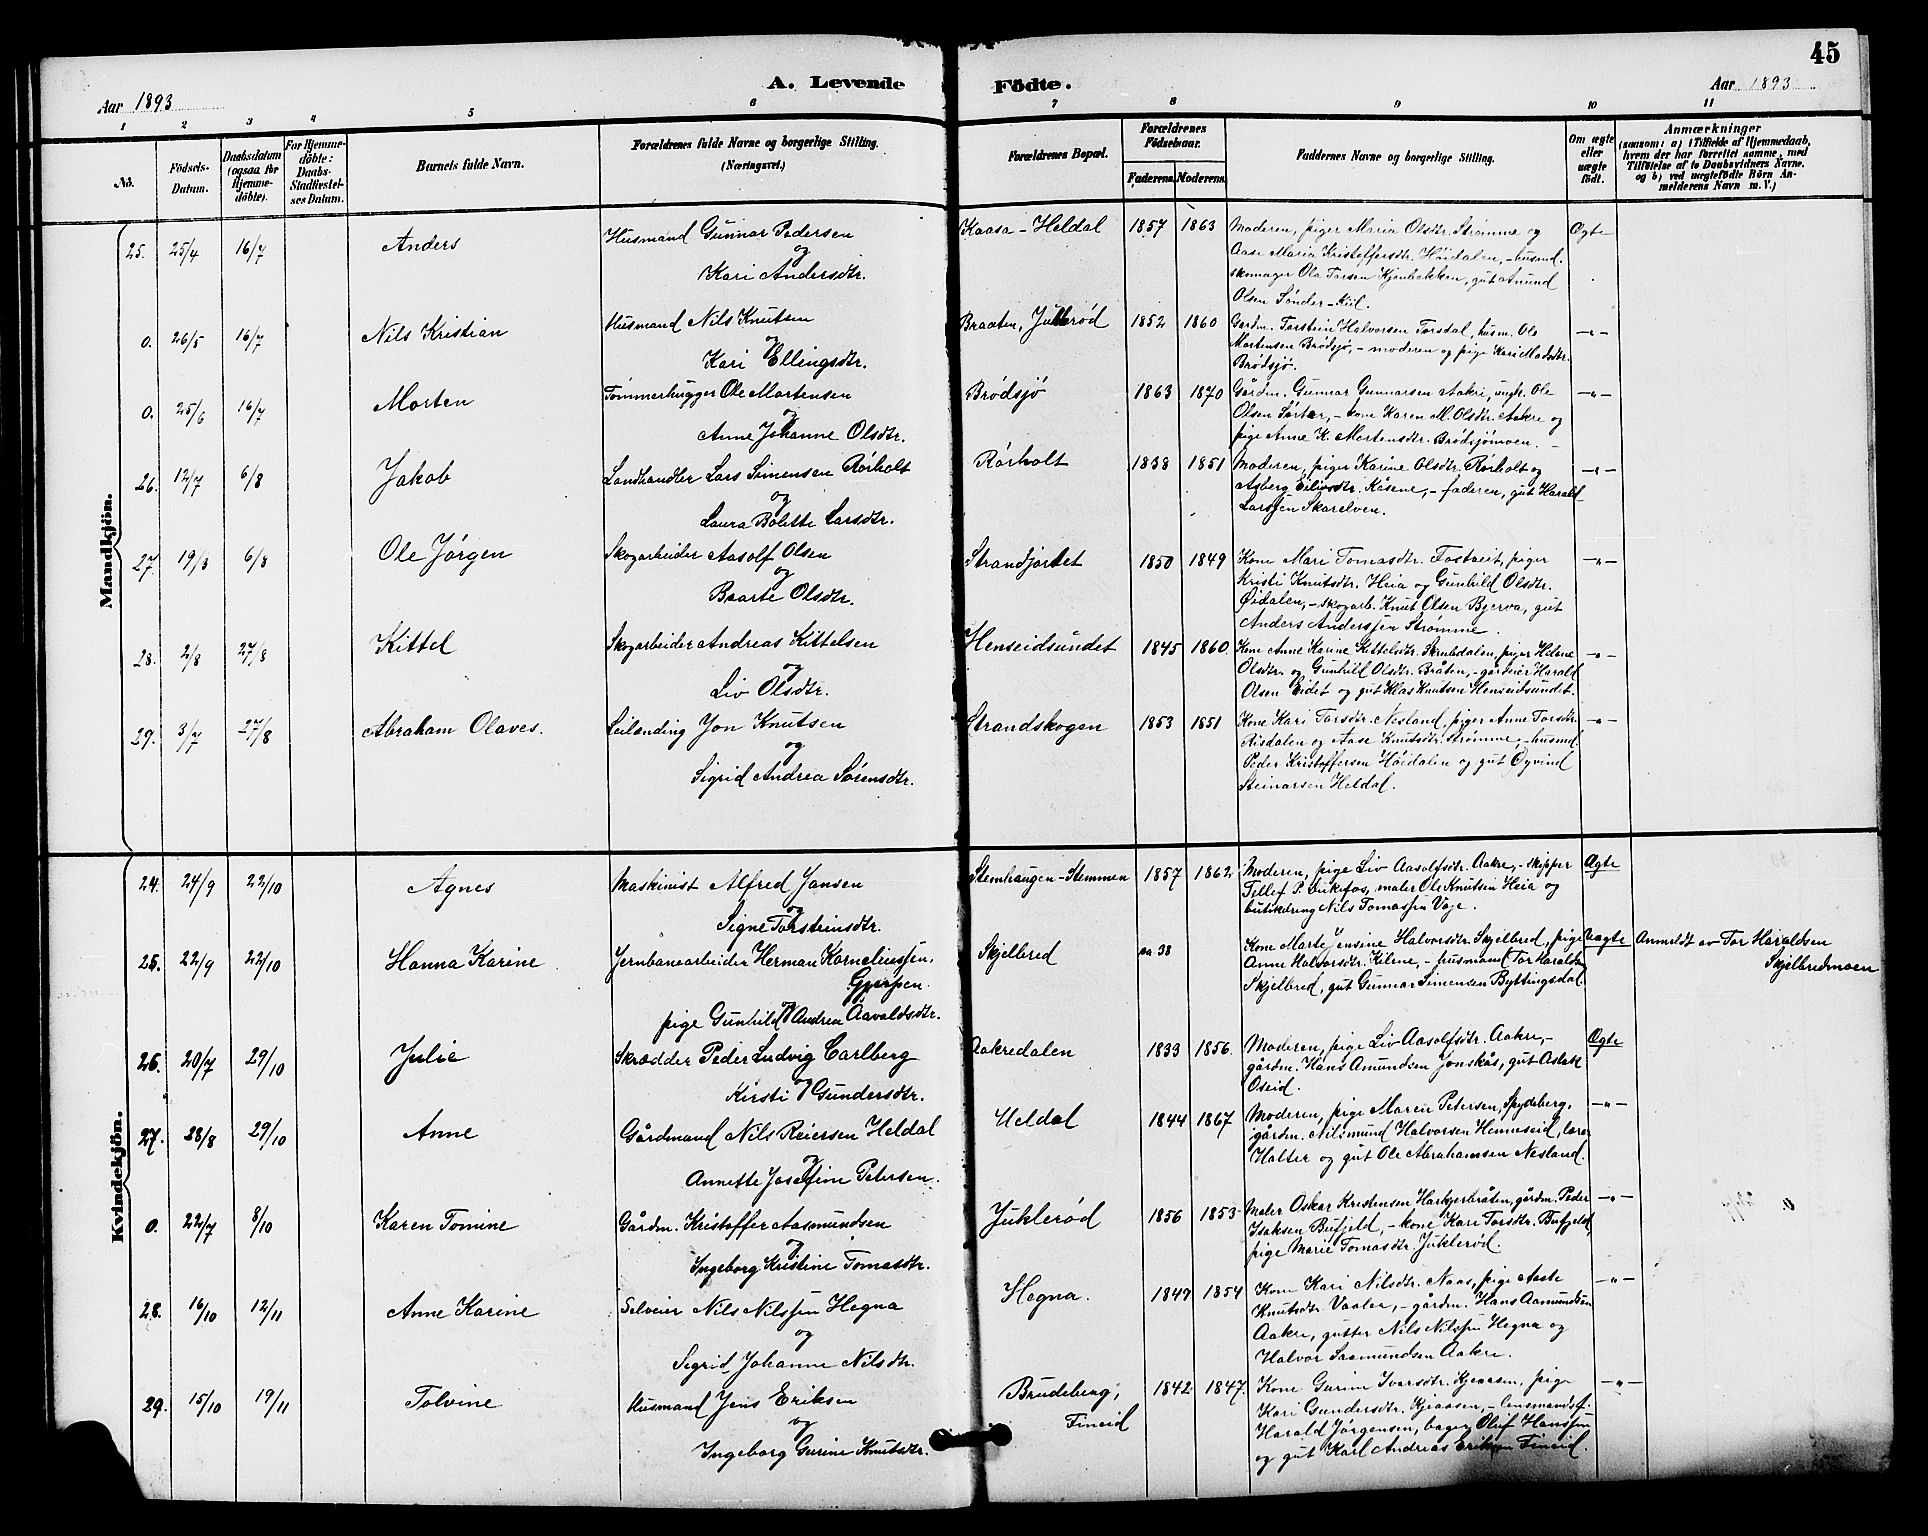 45
A. Levende Födte.
Aar 1893
Aar 1893
1 2 3 4 5 6 7 8 9 10 11
No.
Födsels-Datum.
Daabsdatum (ogsaa for Hjemme-döbte).
For Hjemme-döbte: Daabs-Stadfæstel-ses Datum.
Barnets fulde Navn.
Forældrenes fulde Navne og borgerlige Stilling. (Næringsvei.)
Forældrenes Bopæl.
Forældrenes Födselsaar.
Faderens. Moderens.
Faddernes Navne og borgerlige Stilling.
Om ægte eller uægte födt.
Anmærkninger
(saasom: a) i Tilfælde af Hjemmedaab, hvem der har forrettet samme, med Tilföielse af to Daabsvidners Navne. og b) ved uægtefödte Börn An-melderens Navn m. V.)
Mandkjön.
25. 25/4 16/7 Anders
Husmand Gunnar Pedersen
og
Kari Andersdtr.
Kaasa - Heldal 1857 1863
Moderen, piger Maria Olsdtr. Strømme og
Aase Maria Kristoffersdtr. Høidalen, - husmd.
skomager Ola Torsen Kjenbekken, gut Anund
Olsen Sønder-Kiil.
Ægte
0. 26/5 16/7 Nils Kristian
Husmand Nils Knutsen
og
Kari Ellingsdtr.
Braaten, Juklerød 1852 1860
Gardm. Torstein Halvorsen Torsdal, husm. Ole
Mortensen Brødsjø, - moderen og pige Kari Madsdtr.
Brødsjø.
-"-
0. 25/6 16/7 Morten
Tømmerhugger Ole Mortensen
og
Anne Johanne Olsdtr.
Brødsjø 1863 1870
Gårdm. Gunnar Gunnarsen Aakre, ungk. Ole
Olsen Sørtær, - kone Karen M. Olsdtr. Aakre og
pige Anne K. Mortensdtr. Brødsjømoen.
-"-
26. 12/7 6/8 Jakob
Landhandler Lars Simensen Rørholt
og
Laura Bolette Larsdtr.
Rørholt 1838 1851
Moderen, piger Karine Olsdtr. Rørholt og
Asberg Eilivsdtr. Kåsene, - faderen, gut Harald
Larssen Skarelven.
-"-
27. 19/3 6/8 Ole Jørgen
Skogarbeider Aasolf Olsen
og
Baarte Olsdtr.
Strandjordet 1850 1849
Kone Mari Tomasdtr. Fostveit, piger
Kristi Knutsdtr. Heia og Gunhild Olsdtr.
Øidalen, - skogarb. Knut Olsen Bjerva, gut
Anders Anderssen Strømme.
-"-
28. 2/8 27/8 Kittel
Skogarbeider Andreas Kittelsen
og
Liv Olsdtr.
Henseidsundet 1845 1860
Kone Anne Karine Kittelsdtr. Skrubdalen, piger Helene
Olsdtr. og Gunhild Olsdtr. Bråten, - gårdeier Harald
Olsen Eidet og gut Klas Knutsen Henseidsundet.
-"-
29. 3/7 27/8 Abraham Olaves.
Leilending Jon Knutsen
og
Sigrid Andrea Sørensdtr.
Strandskogen 1853 1851
Kone Kari Torsdtr. Nesland, piger Anne Torsdtr.
Risdalen og Aase Knutsdtr. Strømme, - husmd.
Peder Kristoffersen Høidalen og gut Øyvind
Steinarsen Heldal.
-"-
Kvindekjön.
24. 24/9 22/10 Agnes
Maskinist Alfred Jansen
og
Signe Torsteinsdtr.
Stemhaugen-Stemmen 1857 1862
Moderen, pige Liv Aasolfsdtr. Aakre, - skipper
Tellef P. Lukefos, maler Ole Knutsen Heia og
butikdreng Nils Tomassen Vaje.
Ægte
25. 22/9 22/10 Hanna Karine
Jernbanearbeider Herman Korneliussen,
Gjerpen.
og
pige Gunhild Andrea Aavaldsdtr.
Skjelbred 38
Kone Marte Jensine Halvorsdtr. Skjelbred, pige
Anne Halvorsdtr. Kilene, - husmand Tor Haraldsen
Skjelbred, gut Gunnar Simensen Byttingsdal.
Uægte
Anmeldt av Tor Haraldsen
Skjelbredmoen
26. 20/7 29/10 Julie
Skrædder Peder Ludvig Carlberg
og
Kirsti Gundersdtr.
Aakredalen 1833 1856
Moderen, pige Liv Aasolfsdtr. Aakre, -
gårdm. Hans Amundsen Jonskås, gut Aslak
Oseid.
Ægte
27. 28/8 29/10 Anne
Gårdmand Nils Reiersen Heldal
og
Annette Josefine Petersen.
Heldal 1844 1867
Moderen, pige Maren Petersen, Spydeberg,
gårdm. Nilsmund Halvorsen Henneseid, lærer
Holter og gut Ole Abrahamsen Nesland.
-"-
0. 22/7 8/10 Karen Tomine
Gårdm. Kristoffer Aasmundsen
og
Ingeborg Kristine Tomasdtr.
Juklerød 1856 1853
Maler Oskar Kristensen Harkjerbråten, gårdm. Peder
Isaksen Bufjeld, - kone Kari Torsdtr. Bufjeld,
pige Marie Tomasdtr. Juklerød.
-"-
28. 16/10 12/11 Anne Karine
Selveier Nils Nilssen Hegna
og
Sigrid Johanne Nilsdtr.
Hegna. 1849 1854
Kone Kari Nilsdtr. Naas, pige Aaste
Knutsdtr. Vaalen, - gårdm. Hans Aamundsen
Aakre, gutter Nils Nilssen Hegna og
Halvor Saamundsen Aakre.
-"-
29. 15/10 19/11 Tolvine
Husmand Jens Eriksen
og
Ingeborg Gurine Knutsdtr.
Brudeberg,
Fineid
1842 1847
Kone Gurine Ivarsdtr. Kjeaasen, pige
Kari Gundersdtr. Kjeaasen, - lensmandsf.
Harald Jørgensen, bager Oluf Hanssen
og gut Karl Andreas Eriksen Fineid.
-"-